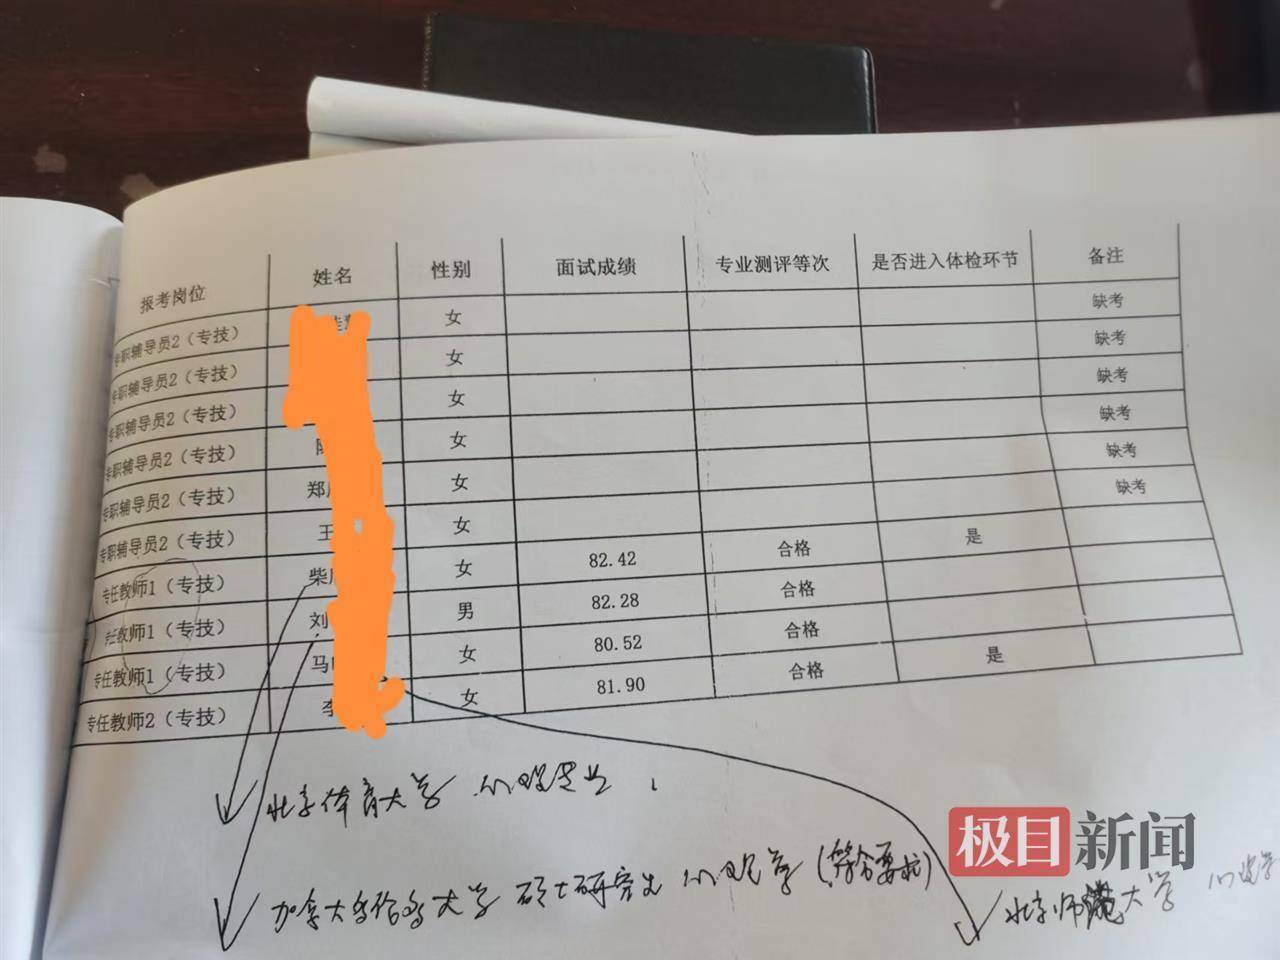 报考岗位 姓名 性别 面试成绩 专业测评等次 是否进入体检环节 备注
专职辅导员2（专技） 女 缺考
专职辅导员2（专技） 女 缺考
专职辅导员2（专技） 女 缺考
专职辅导员2（专技） 女 缺考
专职辅导员2（专技） 郑 女 缺考
专职辅导员2（专技） 王 女 缺考
专任教师1（专技） 柴 女 82.42 合格 是
专任教师1（专技） 刘 男 82.28 合格
专任教师1（专技） 马 女 80.52 合格
专任教师2（专技） 李 女 81.90 合格 是
北京体育大学 心理
加拿大 大学 硕士研究生 心理学（符合要求）
北京师范大学 心理学
极目新闻